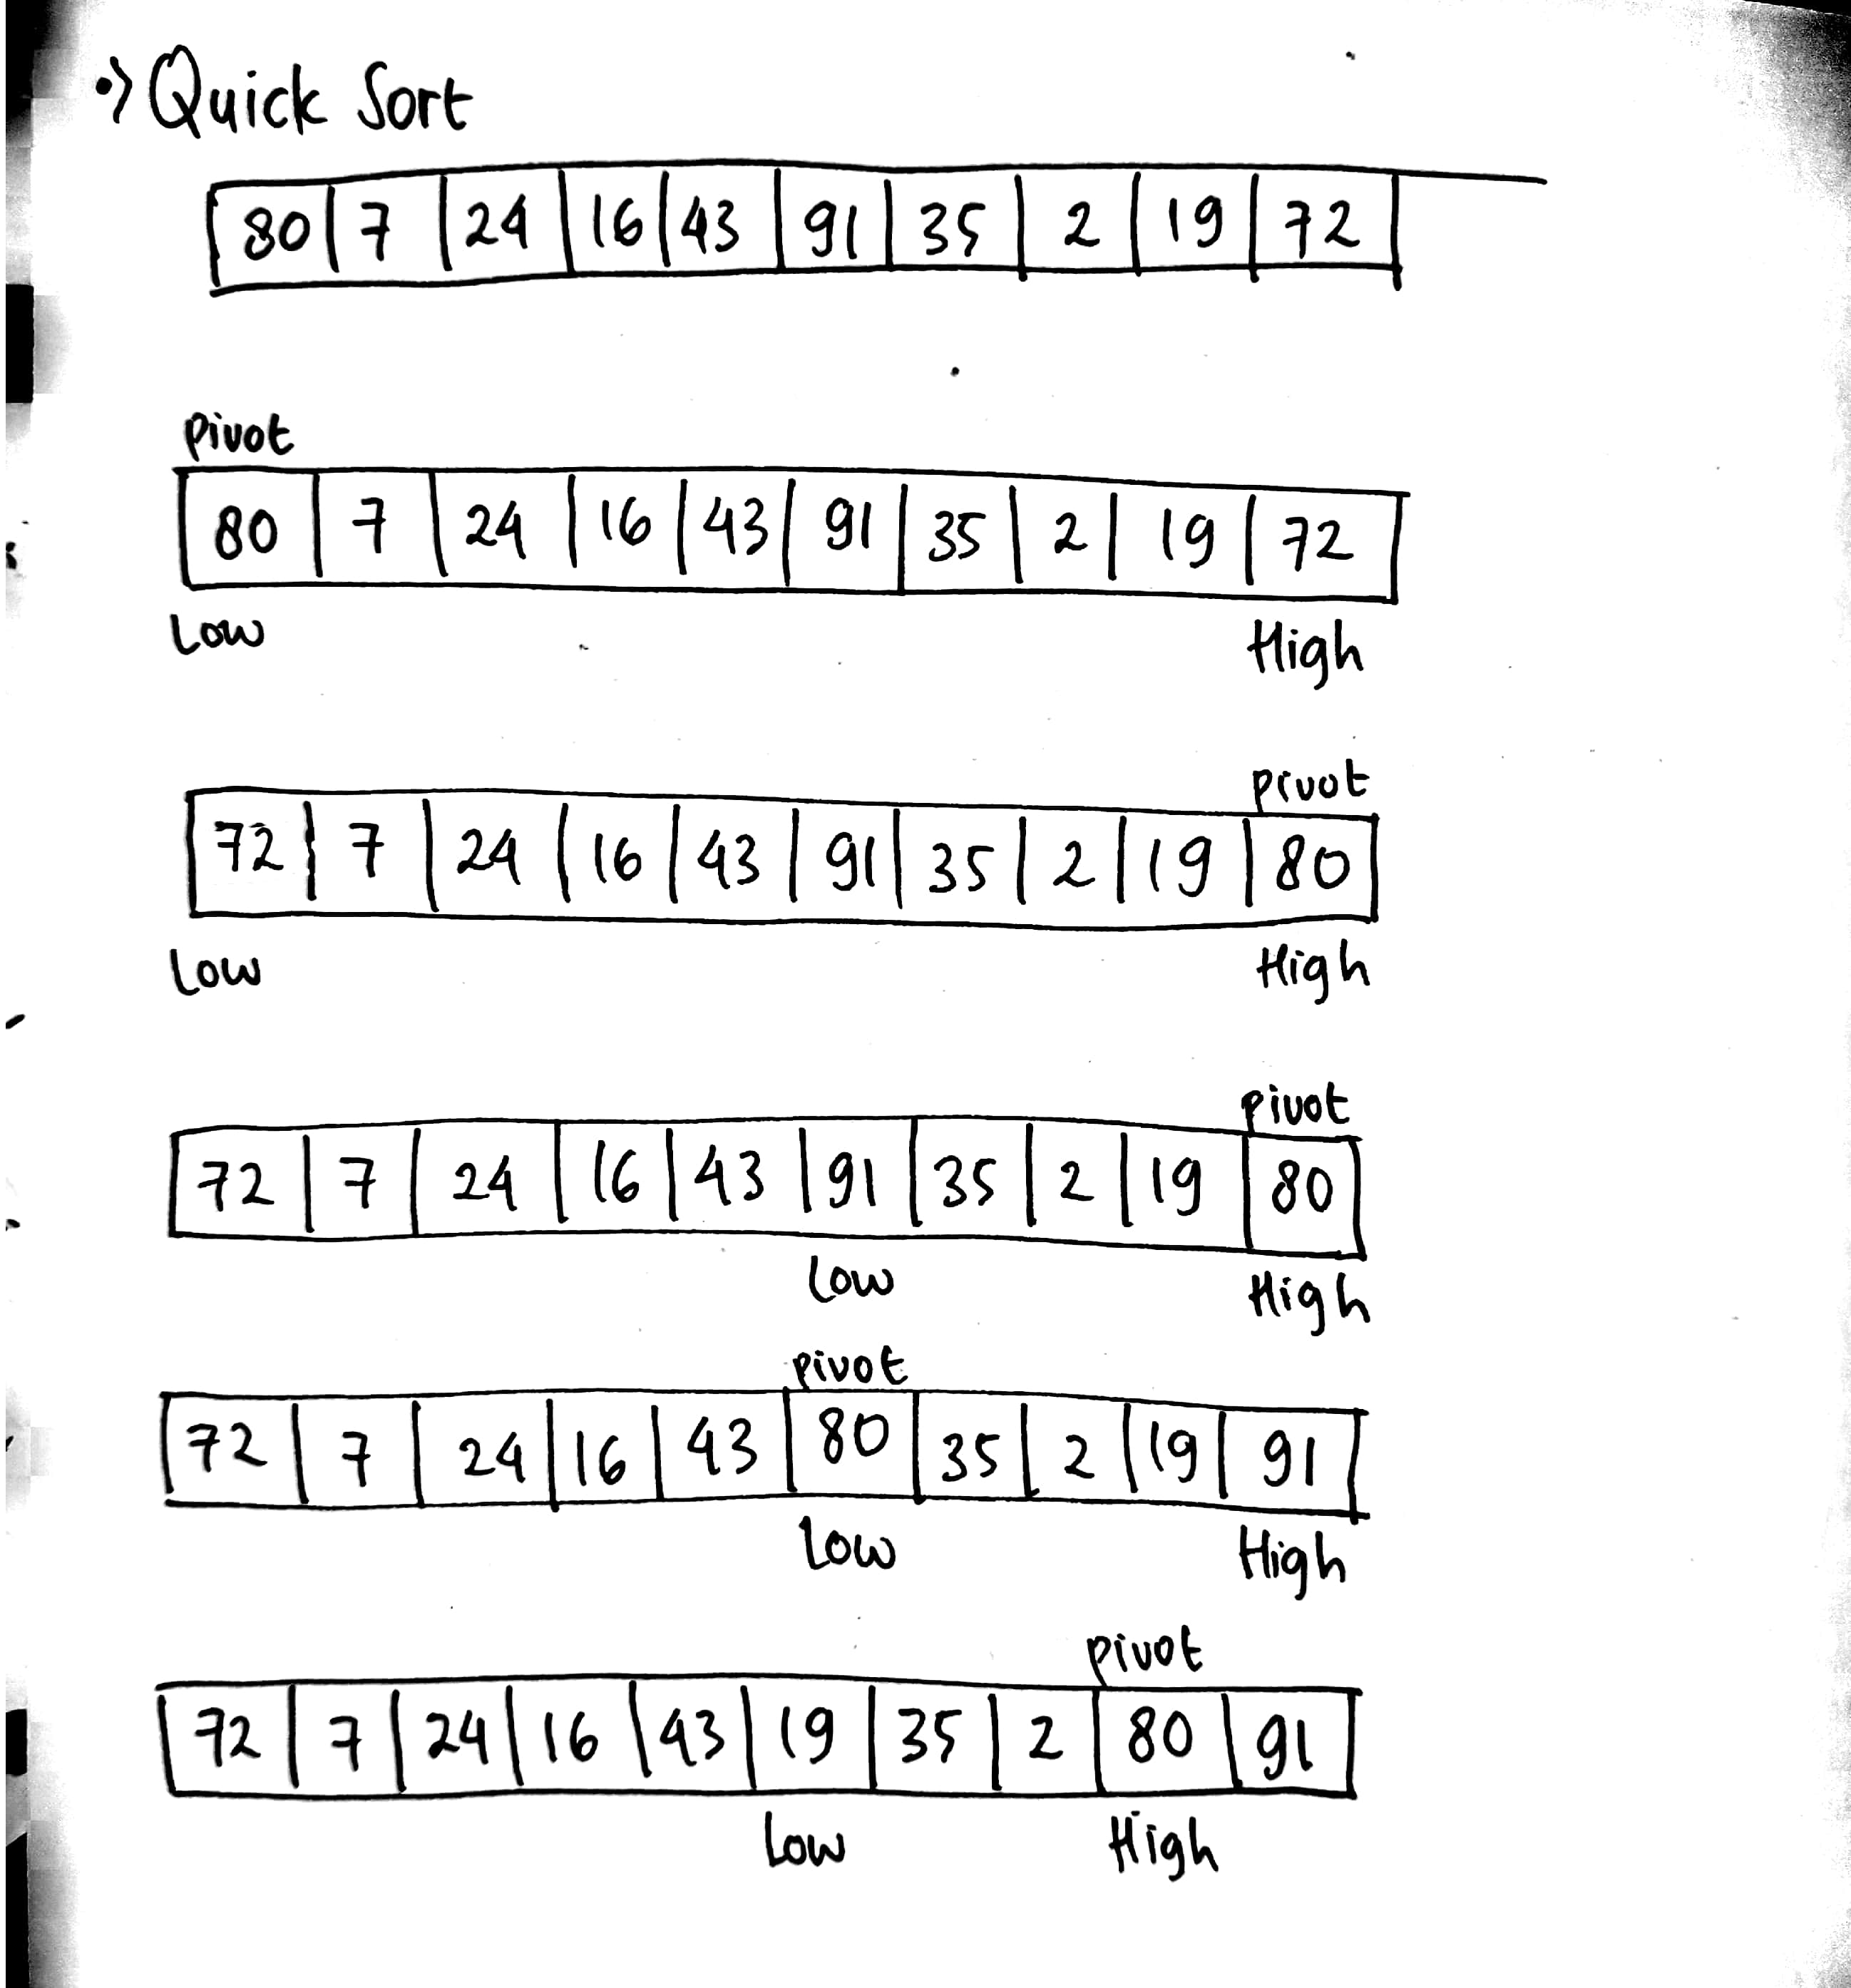 •) Quick Sort
80 7 24 16 43 91 35 2 19 72
pivot
80 7 24 16 43 91 35 2 19 72
Low High
pivot
72 7 24 16 43 91 35 2 19 80
Low High
pivot
72 7 24 16 43 91 35 2 19 80
Low High
pivot
72 7 24 16 43 80 35 2 19 91
Low High
pivot
72 7 24 16 43 19 35 2 80 91
Low High